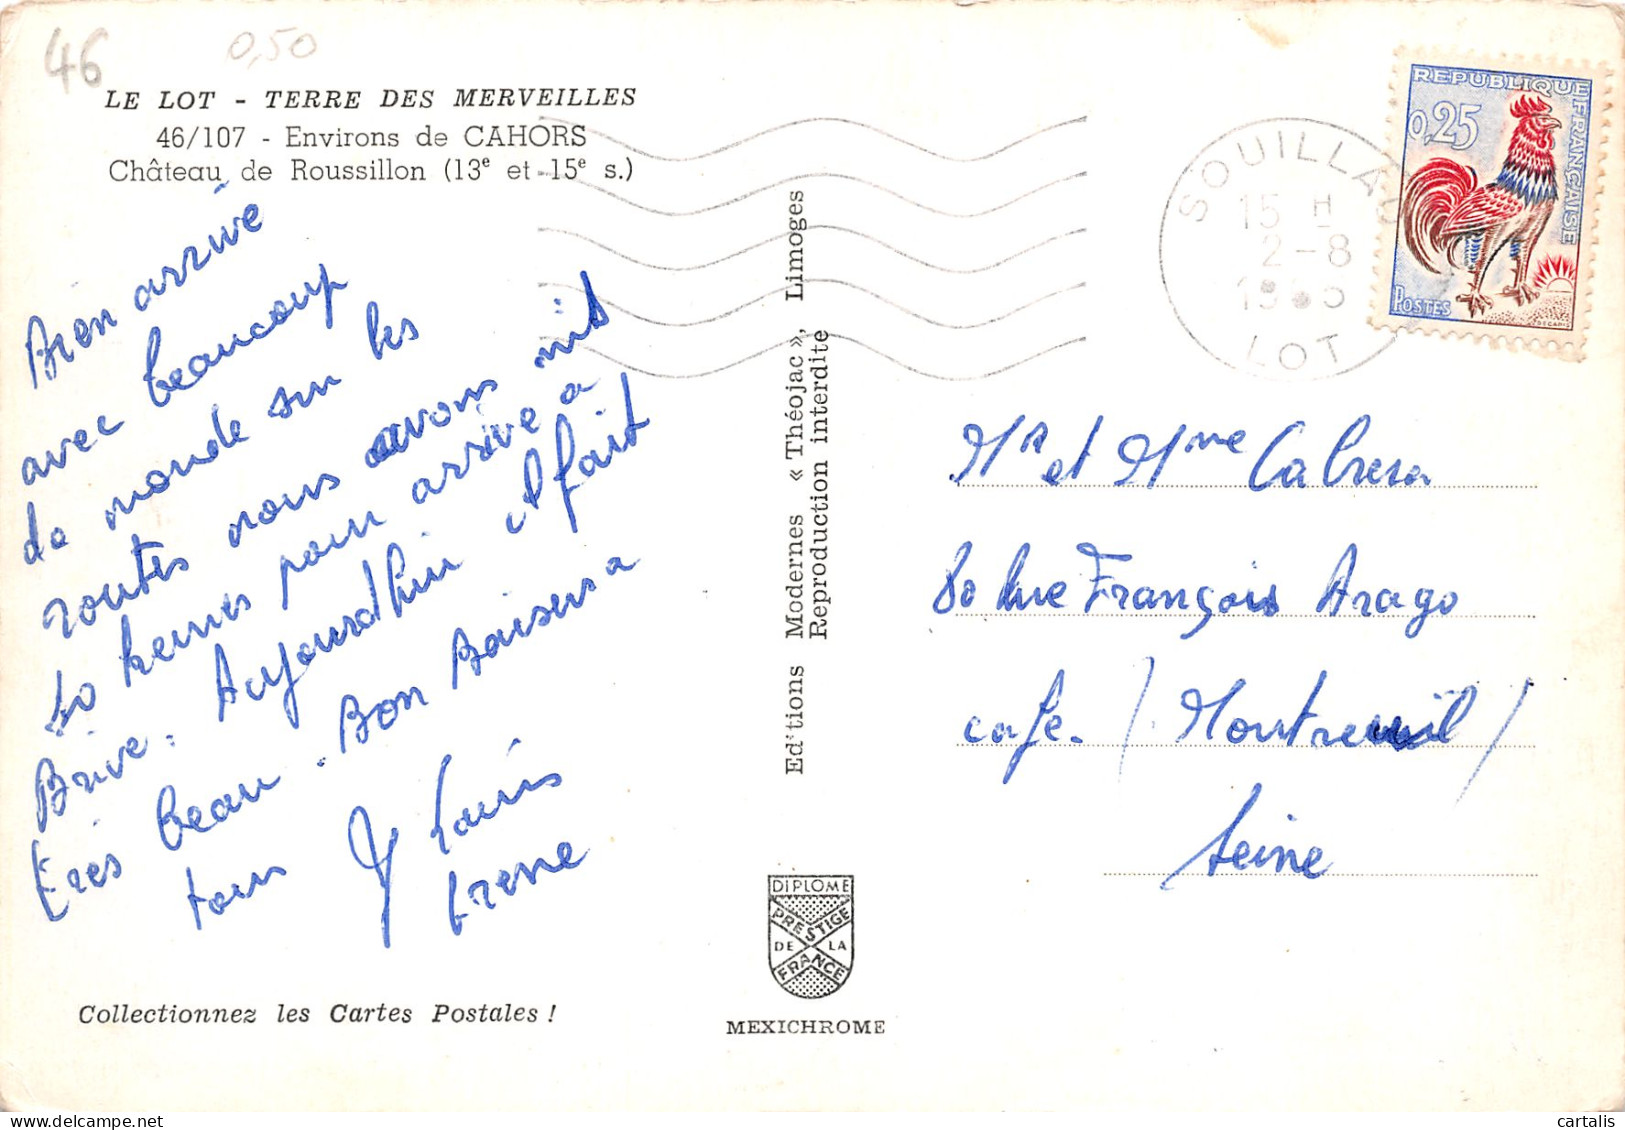 46
0,50
LE LOT - TERRE DES MERVEILLES
46/107 - Environs de CAHORS
Château de Roussillon (13e et 15e s.)
Bien arrivé
avec beaucoup
de monde sur les
routes nous avons mis
10 heures pour arrive a
Brive. Aujourdhui il fait
très beau. Bon Baisers a
tous
Louis
Irene
Collectionnez les Cartes Postales !
Editions Modernes « Théojac », Limoges
Reproduction interdite
DIPLOME
PRESTIGE
DE LA
FRANCE
MEXICHROME
SOUILLAC
15 H
2-8
LOT
REPUBLIQUE FRANÇAISE
0,25
POSTES
DECARIS
Mr et Mme Cabrera
80 Rue François Arago
café. / Montreuil /
Seine
delcampe.net
cartalis